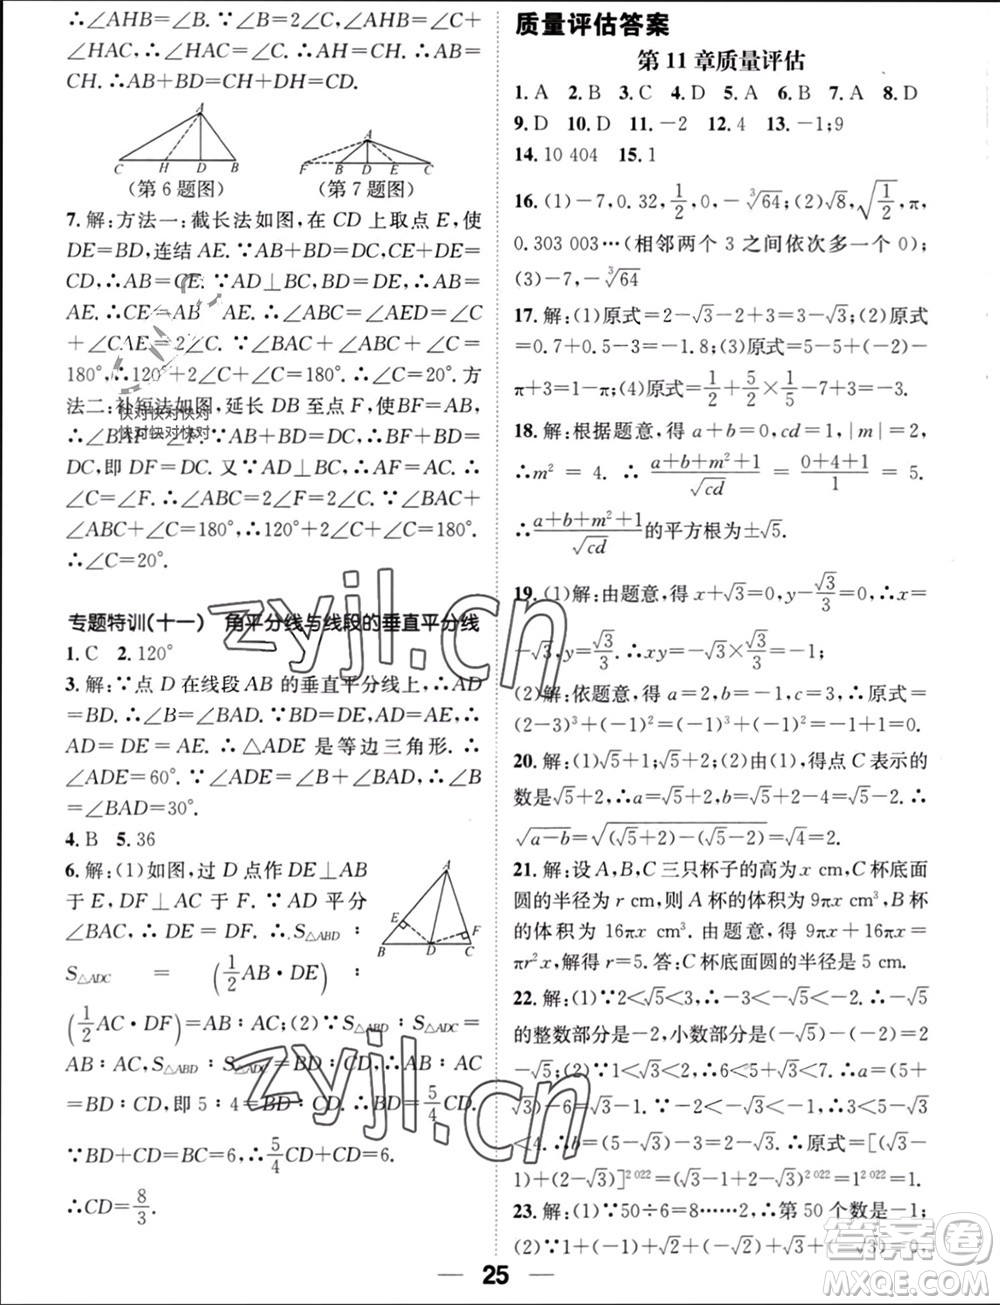 ∴∠AHB=∠B.∵∠AHB=∠C+
∠HAC,∴∠HAC=∠C.∴AH=CH.∴AB=
CH.∴AB+BD=CH+DH=CD.
A
C H D B
(第6题图)
A
F B D E C
(第7题图)
7.解:方法一:截长法如图,在 CD 上取点 E,使
DE=BD,连结 AE.∵AB+BD=DC,
∴AB=CE.∵AD⊥BC,∴AB=
AE.∴CE=AB=AE.∴∠ABC=∠AED=∠C
+∠CAE=2∠C.∵∠BAC+∠ABC+∠C=
180°,∴120°+2∠C+∠C=180°.∴∠C=20°.方
法二:补短法如图,延长 DB 至点 F,使BF=AB,
∴AB+BD=DC,即 DF=DC.又∵AD⊥BC,∴AF=AC.∴
∠C=∠F.∴∠ABC=2∠F=2∠C.∵∠BAC+
∠ABC+∠C=180°,∴120°+2∠C+∠C=180°.
∴∠C=20°.
专题特训(十一) 角平分线与线段的垂直平分线
1.C 2.120°
3.解:∵点 D 在线段 AB 的垂直平分线上,∴AD
=BD.∴∠B=∠BAD.∵BD=DE,∴
AD=DE=AE.∴△ADE 是等边三角形.∴
∠ADE=60°.∵∠ADE=∠B+∠BAD,∴∠B
=∠BAD=30°.
4.B 5.36
6.解:(1)如图,过 D 点作 DE⊥AB
于 E,DF⊥AC 于 F.∵AD 平分
∠BAC,∴DE=DF.∴S△ABD:
S△ADC=(1/2 AB·DE):
(1/2 AC·DF)=AB:AC;(2)∵S△ABD:S△ADC=
AB:AC,S△ABD:S△ADC=BD:CD,∴AB:AC
=BD:CD,即 5:4=BD:CD.∴BD=5/4 CD.
∵BD+CD=BC=6,∴5/4 CD+CD=6.
∴CD=8/3.
A
E F
B D C
质量评估答案
第 11 章质量评估
1.A 2.B 3.C 4.D 5.A 6.B 7.A 8.D
9.D 10.D 11.-2 12.4 13.-1;9
14.10 404 15.1
16.(1)-7,0.32,1/2,0,-∛64;(2)√8,√(1/2),π,
0.303 003…(相邻两个 3 之间依次多一个 0);
(3)-7,-∛64
17.解:(1)原式=2-√3-2+3=3-√3;(2)原式
=0.7+0.5-3=-1.8;(3)原式=√2-√2+
π+3=1-π;(4)原式=1/2+5/2×1/5-7+3=-3.
18.解:根据题意,得 a+b=0,cd=1,|m|=2,
∴m²=4.∴(a+b+m²+1)/√cd=(0+4+1)/1=5.
∴(a+b+m²+1)/√cd的平方根为±√5.
19.(1)解:由题意,得 x+√3=0,y-√3/3=0,∴x=
-√3,y=√3/3.∴xy=-√3×√3/3=-1;
(2)解:依题意,得 a=2,b=3,c=-1,∴原式=
(2-3)³+(-1)²=(-1)³+(-1)²=-1+1=0.
20.解:(1)√5+1;√5+2;(2)由(1)得,点 C 表示的
数是√5+2,∴a=√5+2,b=√5+2-4=√5-2.∴
√(a-b)=√((√5+2)-(√5-2))=√4=2.
21.解:设 A,B,C 三只杯子的高为 x cm,C 杯底面
圆的半径为 r cm,则 A 杯的体积为 9πx cm³,B 杯
的体积为 16πx cm³.由题意,得 9πx+16πx=
πr²x,解得 r=5.答:C 杯底面圆的半径是 5 cm.
22.解:(1)∵2<√5<3,∴-3<-√5<-2.∴-√5
的整数部分是-2,小数部分是(-√5)-(-2)=
2-√5;(2)∵1<√3<2,∴6<5+√3<7.∴a=(5+
√3)-6=√3-1.∵-2<-√3<-1,∴3<5-√3
<4.∴b=5-√3-3=2-√3.∴原式=[(√3-
1)+(2-√3)]²⁰²²=(√3-1+2-√3)²⁰²²=1²⁰²²=1.
23.解:(1)∵50÷6=8……2,∴第 50 个数是-1;
(2)∵1+(-1)+√2+(-√2)+√3+(-√3)=0,
25